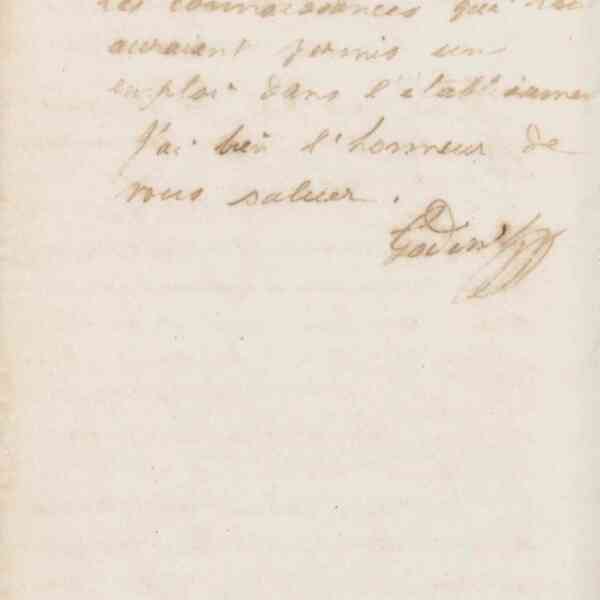 les connaissances qui lui
auraient permis un
emploi dans l'établissemen
J'ai bien l'honneur de
vous saluer.
Godin